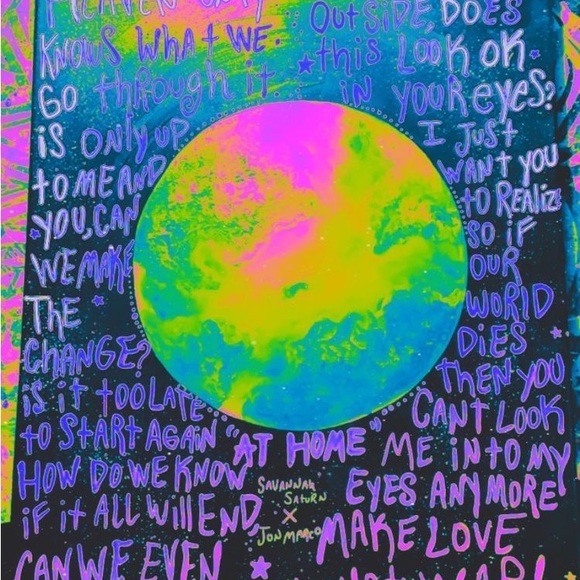 HEAVEN ONLY
KNOWS WHAT WE
GO through it
is ONLY UP
to ME AND
YOU, CAN
WE MAKE
THE
CHANGE?
is it too LATE
to StARt AGAiN
HOW DO WE KNOW
iF it ALL Will END
CAN WE EVEN
OutSiDE, DOES
this LOOK OK
in YOUR eyes?
I JUST
WANT YOU
to REALiZE
SO iF
OUR
WORLD
DiES
tHEN YOU
CANT LOOK
ME iN tO MY
EYES ANYMORE
MAKE LOVE
"AT HOME"
SAVANNAH
SATURN
X
JON MARCO